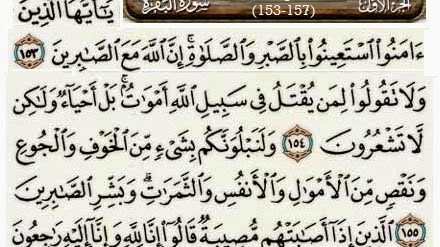 الجزء الأول (153-157) سورة البقرة يَٰٓأَيُّهَا ٱلَّذِينَ
ءَامَنُوا۟ ٱسْتَعِينُوا۟ بِٱلصَّبْرِ وَٱلصَّلَوٰةِ ۚ إِنَّ ٱللَّهَ مَعَ ٱلصَّٰبِرِينَ ١٥٣
وَلَا تَقُولُوا۟ لِمَن يُقْتَلُ فِى سَبِيلِ ٱللَّهِ أَمْوَٰتٌۢ ۚ بَلْ أَحْيَآءٌ وَلَٰكِن
لَّا تَشْعُرُونَ ١٥٤ وَلَنَبْلُوَنَّكُم بِشَىْءٍ مِّنَ ٱلْخَوْفِ وَٱلْجُوعِ
وَنَقْصٍ مِّنَ ٱلْأَمْوَٰلِ وَٱلْأَنفُسِ وَٱلثَّمَرَٰتِ ۗ وَبَشِّرِ ٱلصَّٰبِرِينَ
١٥٥ ٱلَّذِينَ إِذَآ أَصَٰبَتْهُم مُّصِيبَةٌ قَالُوٓا۟ إِنَّا لِلَّهِ وَإِنَّآ إِلَيْهِ رَٰجِعُونَ